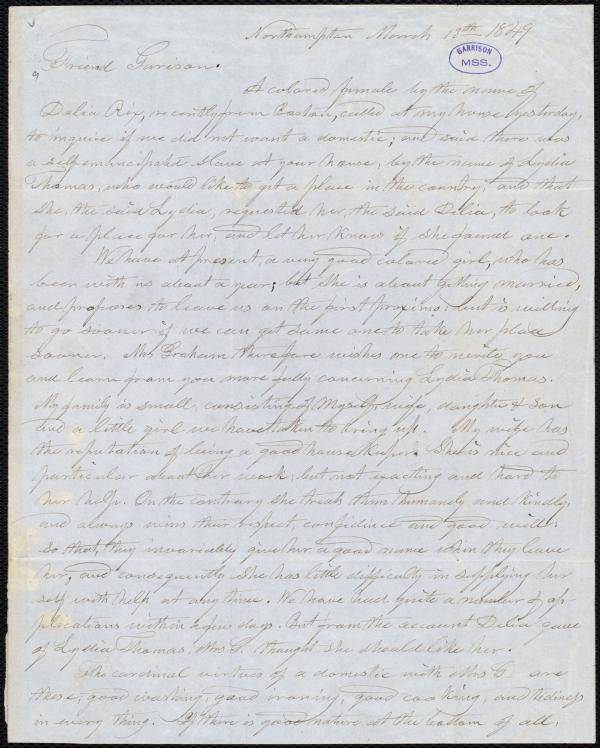 Northampton March 13th 1849
GARRISON
MSS.
Friend Garrison.
A colored female by the name of
Delia Rix, recently from Boston, called at my house yesterday,
to inquire if we did not want a domestic; and said there was
a self emancipated slave at your house, by the name of Lydia
Thomas, who would like to get a place in the country, and that
she, the said Lydia, requested her, the said Delia, to look
for a place for her, and let her know if she found one.
We have at present, a very good colored girl, who has
been with us about a year; but she is about getting married,
and proposes to leave us on the first proximo but is willing
to go sooner if we can get some one to take her place
sooner. Mrs Graham therefore wishes me to write you
and learn from you more fully concerning Lydia Thomas.
My family is small, consisting of Myself, wife, daughter & son
and a little girl we have taken to bring up. My wife has
the reputation of being a good house keeper. She is nice and
particular about her work, but not exacting and hard to
her help. On the contrary she treats them humanely and kindly,
and always wins their respect, confidence and good will:
so that, they invariably give her a good name when they leave
her, and consequently she has little difficulty in supplying her
self with help at any time. We have had quite a number of ap-
plications within a few days. But from the account Delia gave
of Lydia Thomas, Mrs G. thought she should like her.
The cardinal virtues of a domestic with Mrs G are
these, good washing, good ironing, good cooking, and tidiness
in every thing. If there is good nature at the bottom of all,